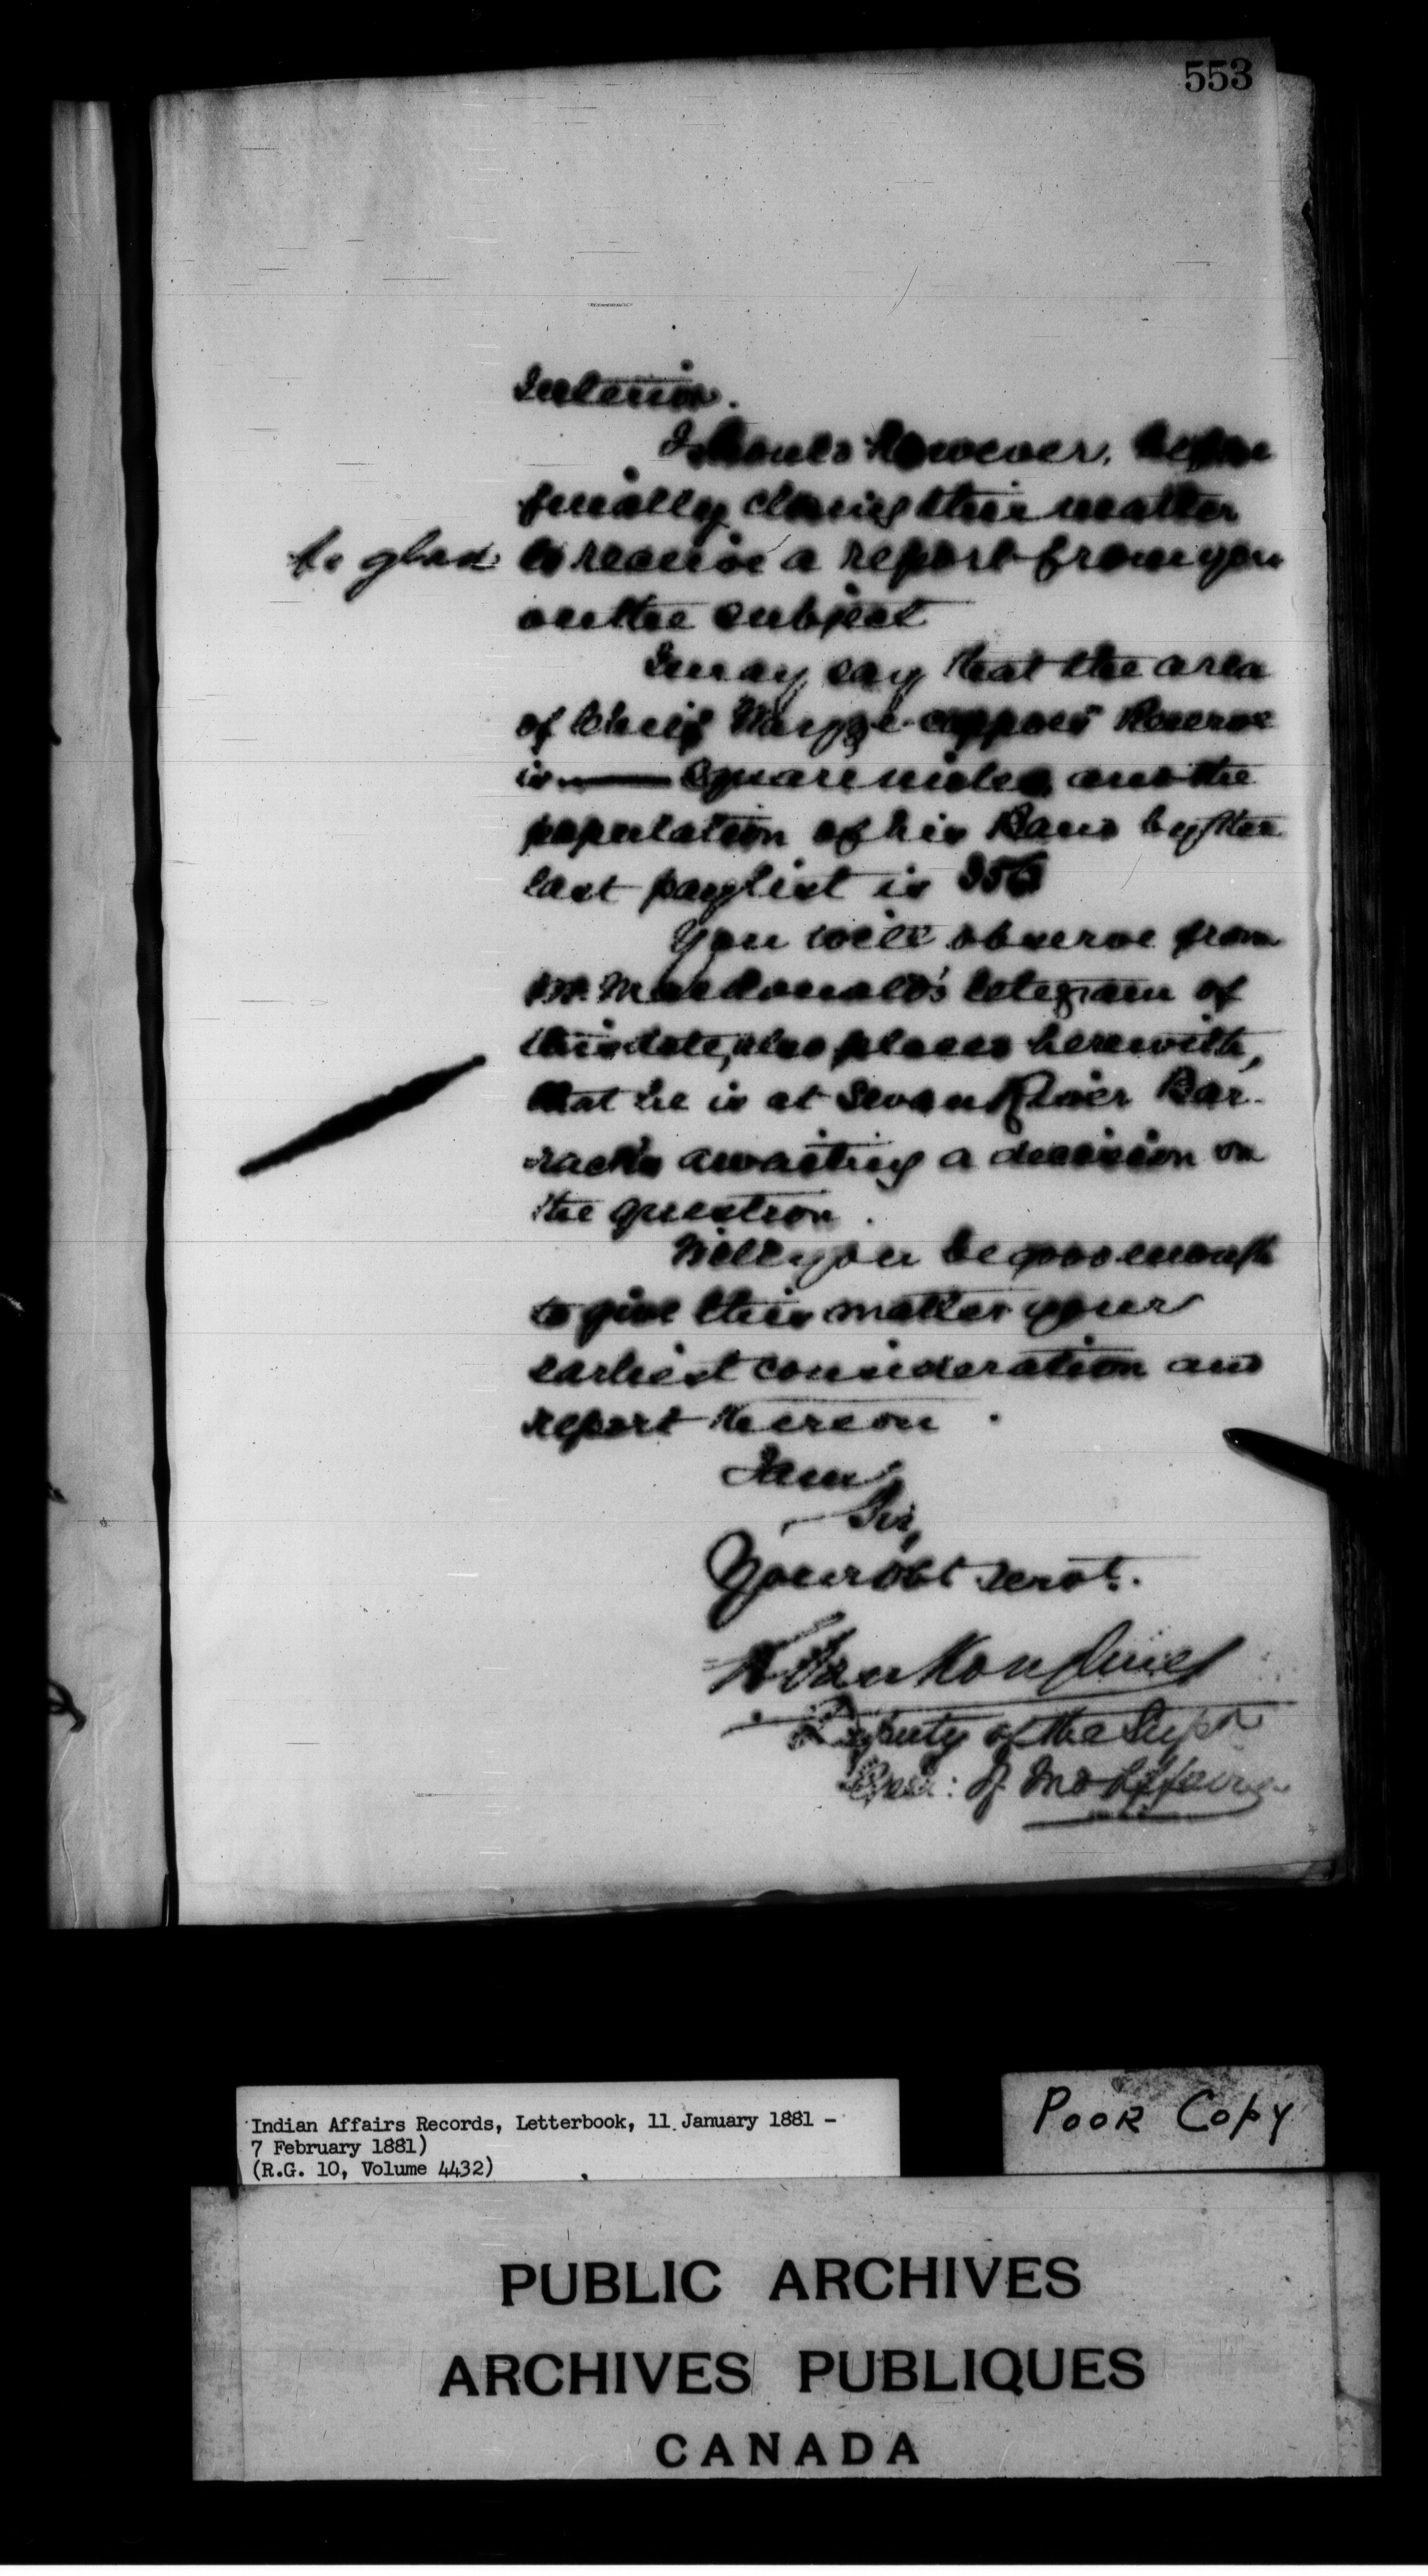 553
Interior.
I should however, before
finally closing this matter
be glad to receive a report from you
on the subject
I may say that the area
of Chief Reserve
is —— Square miles and the
population of his Band by the
last paylist is 356
You will observe from
Mr. Macdonald's telegram of
this date, also placed herewith,
that he is at Swan River Bar-
racks awaiting a decision on
the question.
Will you be good enough
to give this matter your
earliest consideration and
report thereon.
I am
Sir,
Your obt servt.
L Vankoughnet
Deputy of the Supt
Genl: of Ind Affairs
Indian Affairs Records, Letterbook, 11 January 1881 -
7 February 1881)
(R.G. 10, Volume 4432)
POOR COPY
PUBLIC ARCHIVES
ARCHIVES PUBLIQUES
CANADA